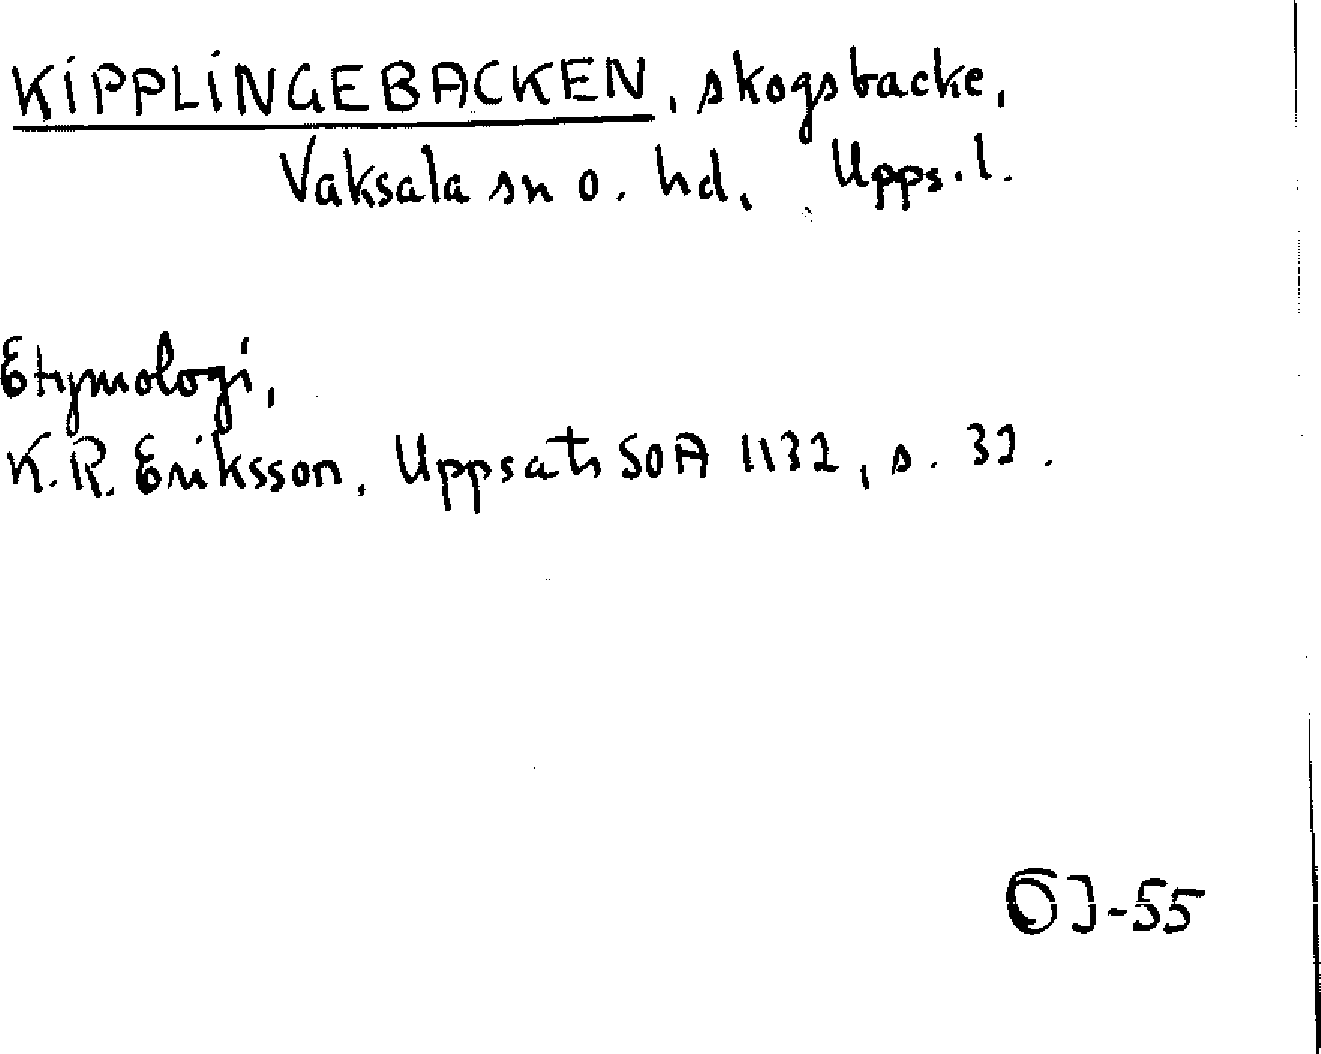 KIPPLINGEBACKEN, skogsbacke,
Vaksala sn o. hd, Upps. l.
Etymologi,
K.R. Eriksson, Uppsats SOA 1132, s. 32.
ÖJ-55